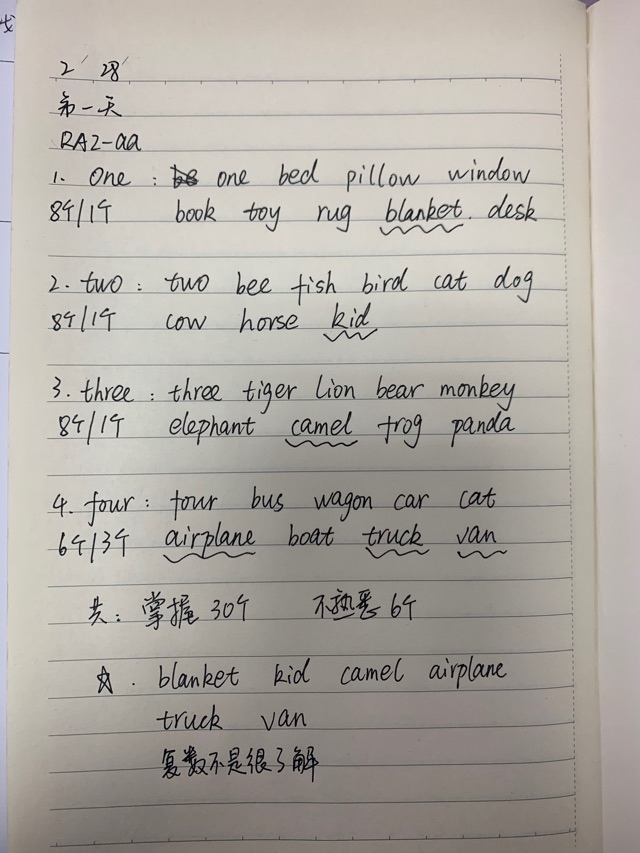 2/28
第一天
RAZ-aa
1. One : one bed pillow window
8个/1个 book toy rug blanket. desk
2. two : two bee fish bird cat dog
8个/1个 cow horse kid
3. three : three tiger lion bear monkey
8个/1个 elephant camel frog panda
4. four : four bus wagon car cat
6个/3个 airplane boat truck van
共: 掌握 30个 不熟悉 6个
☆. blanket kid camel airplane
truck van
复数不是很了解